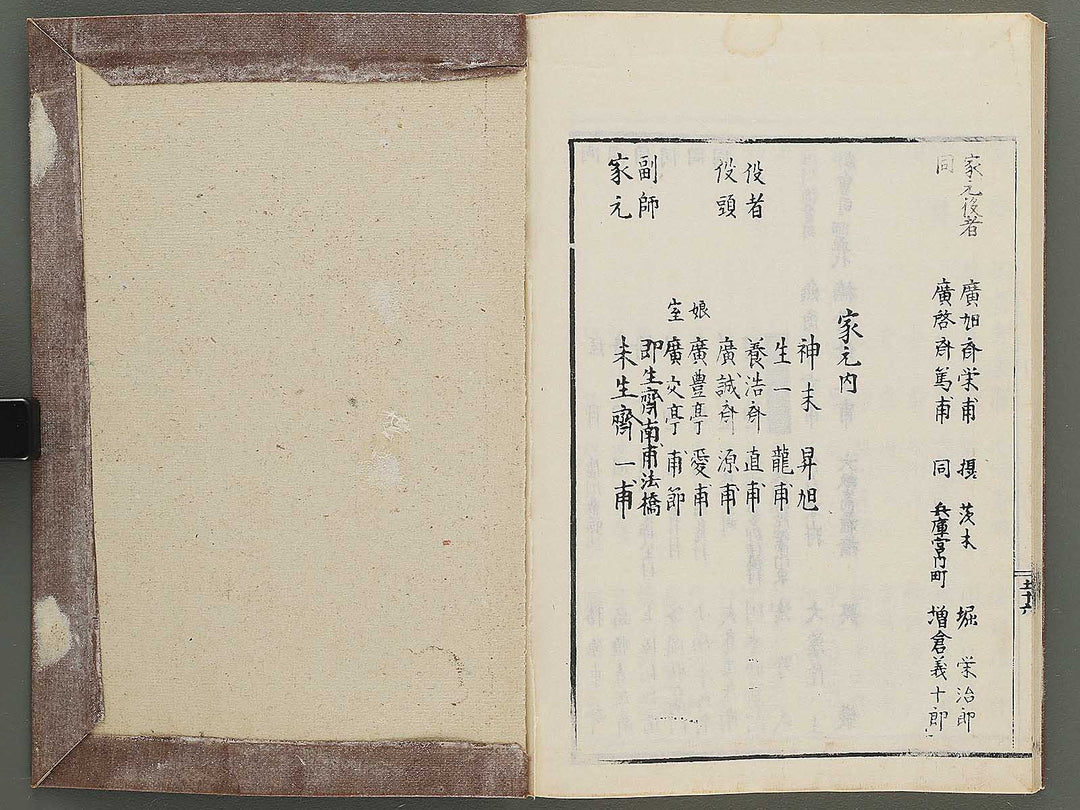 家元役者 廣旭斉栄甫 摂 茨木 堀 栄治郎
同 廣啓斉篤甫 同 兵庫宮内町 増倉義十郎
家元内
神末 昇旭
生一 龍甫
役者 養浩斉 直甫
役頭 廣誠斉 源甫
娘 廣豊亭 愛甫
室 廣交亭 甫節
副師 即生齊南甫法橋
家元 未生齊一甫